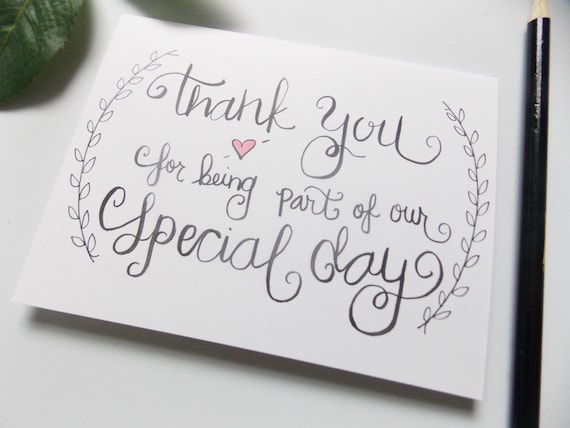 Thank You
for being part of our
Special day